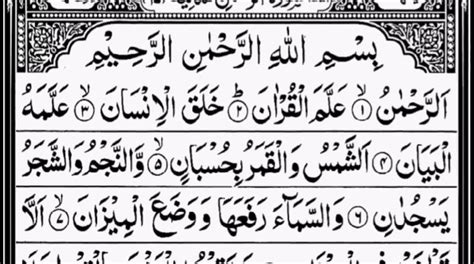 بِسْمِ اللهِ الرَّحْمٰنِ الرَّحِيْمِ
اَلرَّحْمٰنُ ۙ﴿۱﴾ عَلَّمَ الْقُرْاٰنَ ؕ﴿۲﴾ خَلَقَ الْاِنْسَانَ ۙ﴿۳﴾ عَلَّمَهُ
الْبَيَانَ ﴿۴﴾ اَلشَّمْسُ وَالْقَمَرُ بِحُسْبَانٍ ۙ﴿۵﴾ وَّالنَّجْمُ وَالشَّجَرُ
يَسْجُدٰنِ ﴿۶﴾ وَالسَّمَآءَ رَفَعَهَا وَوَضَعَ الْمِيْزَانَ ۙ﴿۷﴾ اَلَّا